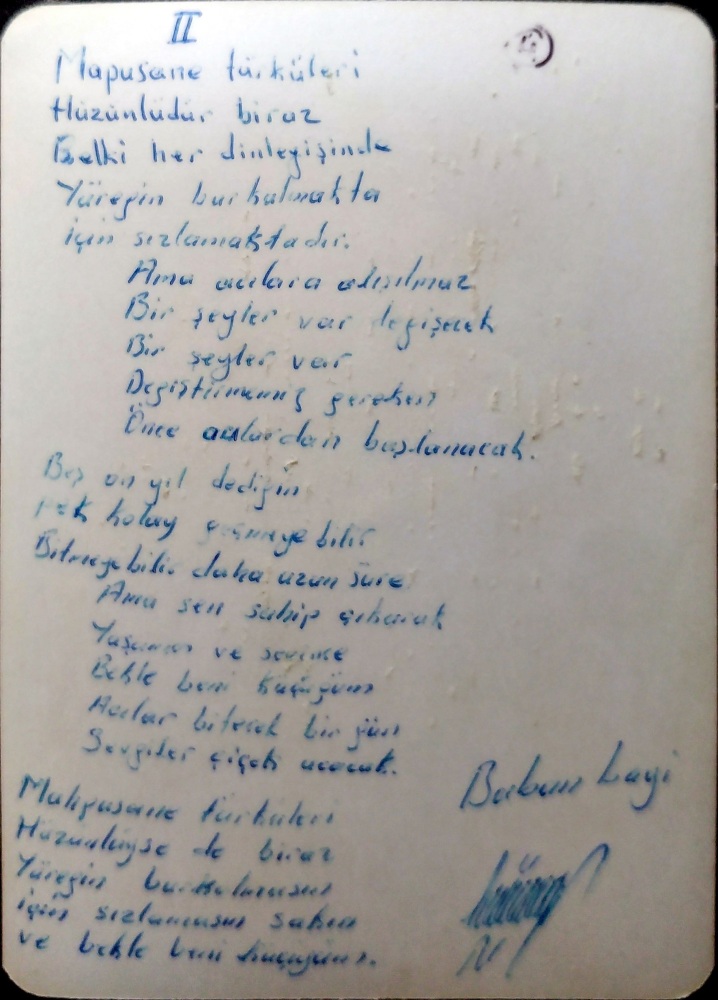 II
Mapusane türküleri
Hüzünlüdür biraz
Belki her dinleyişinde
Yüreğin burkulmakta
için sızlamaktadır.
Ama acılara alışılmaz
Bir şeyler var değişecek
Bir şeyler var
Değiştirmemiz gereken
Önce acılardan başlanacak.
Beş on yıl dediğin
pek kolay geçmeyebilir
Bitmeyebilir daha uzun süre
Ama sen sahip çıkarak
Yaşama ve sevince
Bekle beni küçüğüm
Acılar bitecek bir gün
Sevgiler çiçek açacak.
Mahpusane türküleri
Hüzünlüyse de biraz
Yüreğin burkulmasın
için sızlamasın sakın
ve bekle beni küçüğüm.
Baban